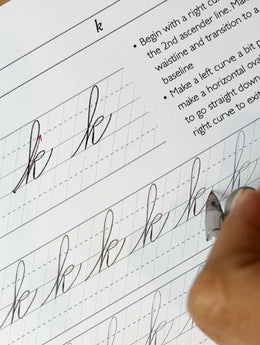 k
• Begin with a right cu
the 2nd ascender line. Ma
waistline and transition to a
baseline
• Make a left curve a bit p
make a horizontal oval
to go straight down
right curve to exit
k k
k k k k k k